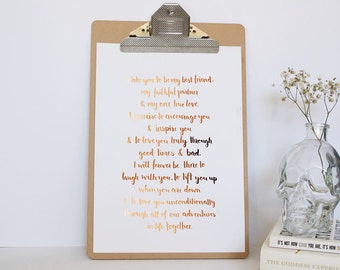 take you to be my best friend,
my faithful partner
& my one true love.
I promise to encourage you
& inspire you
& to love you truly through
good times & bad.
I will forever be there to
laugh with you, to lift you up
when you are down
& to love you unconditionally
through all of our adventures
in life together.
IT'S NOT HOW GOOD YOU ARE,
THE GODDESS EXPERIENCE